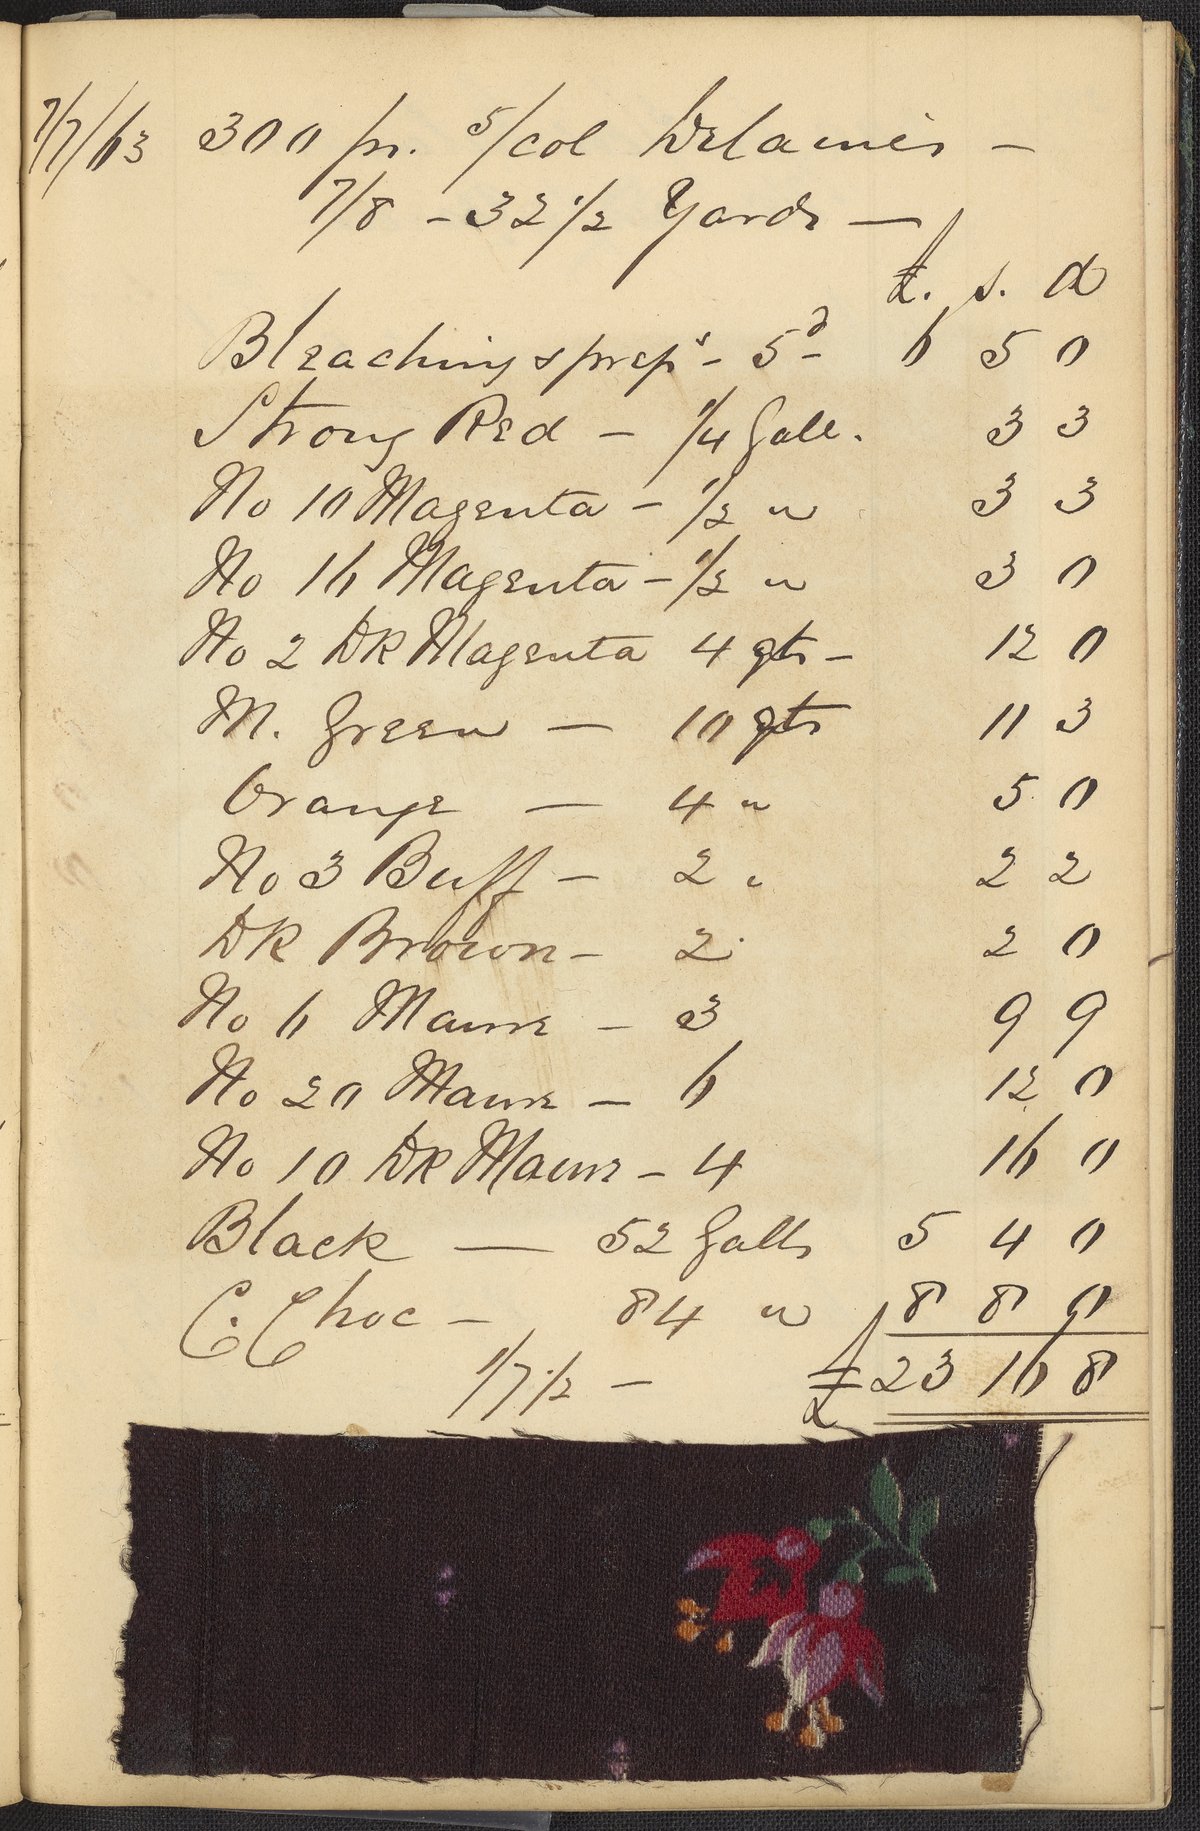 7/7/63 300 ps. 5/col Delaines —
7/8 - 32 1/2 Yards —
£. s. d
Bleaching & prep^s - 5^d - 6 5 0
Strong Red - 1/4 Gall. 3 3
No 10 Magenta - 1/2 " 3 3
No 16 Magenta - 1/2 " 3 0
No 2 DK Magenta 4 qts - 12 0
M. Green — 10 qts 11 3
Orange — 4 " 5 0
No 3 Buff - 2 " 2 2
DK Brown - 2 2 0
No 6 Mauve - 3 9 9
No 20 Mauve - 6 12 0
No 10 DK Mauve - 4 16 0
Black — 52 Galls 5 4 0
C. Choc - 84 " 8 8 0
1/7 1/2 - £ 23 16 8